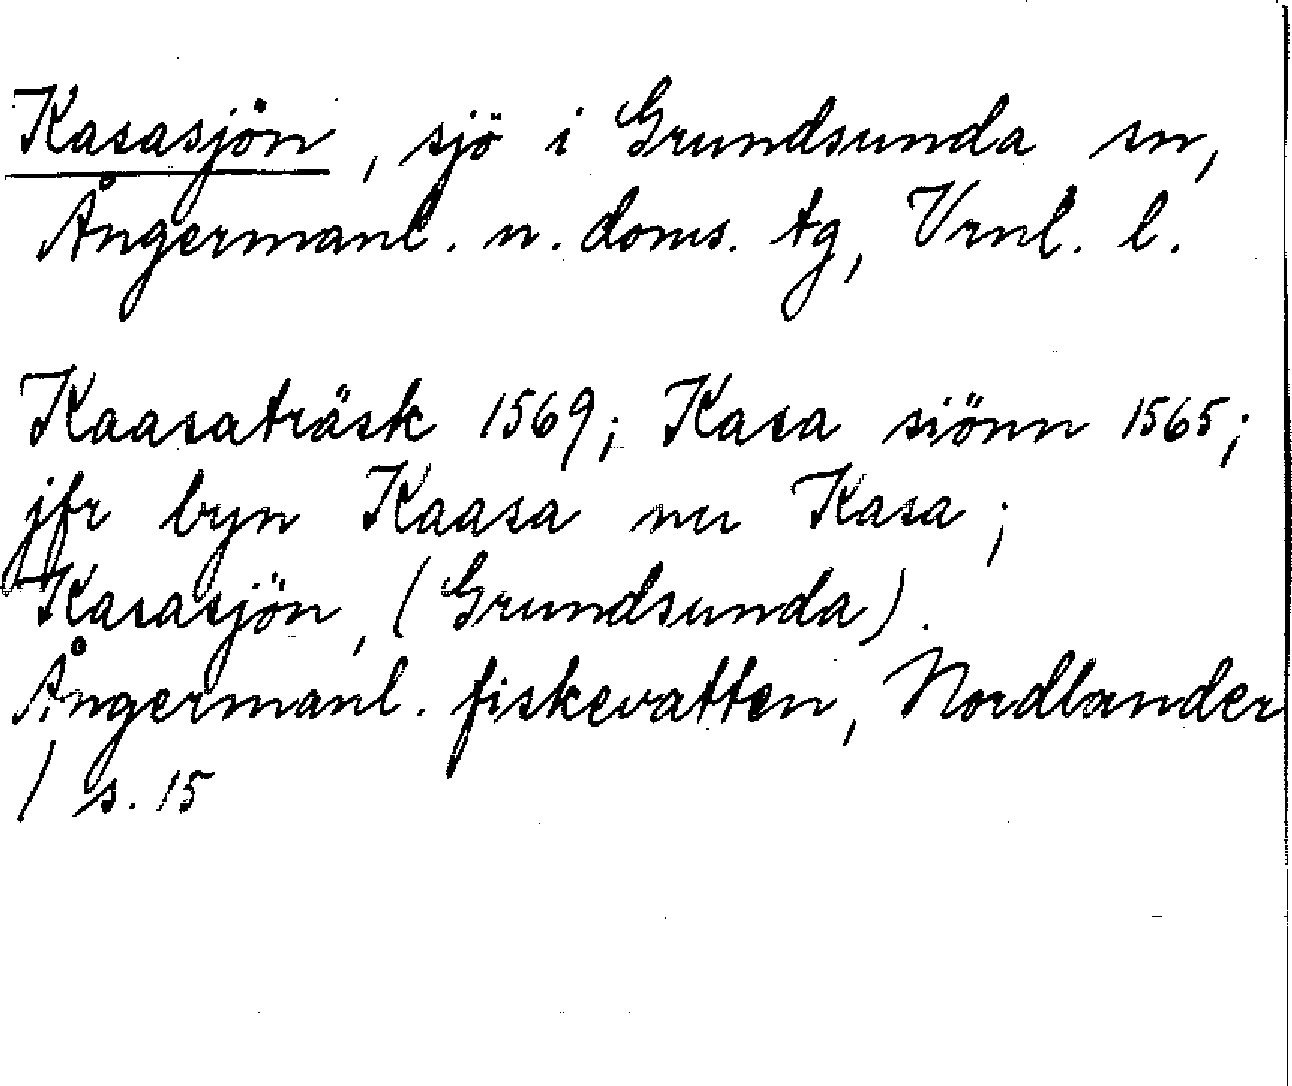 Kasasjön, sjö i Grundsunda sn,
Ångermanl. n. doms. tg, Vrnl. l.
Kaasaträsk 1569; Kasa siönn 1565;
jfr byn Kaasa nu Kasa;
Kasasjön, (Grundsunda).
Ångermanl. fiskevatten, Nordlander
/ s. 15